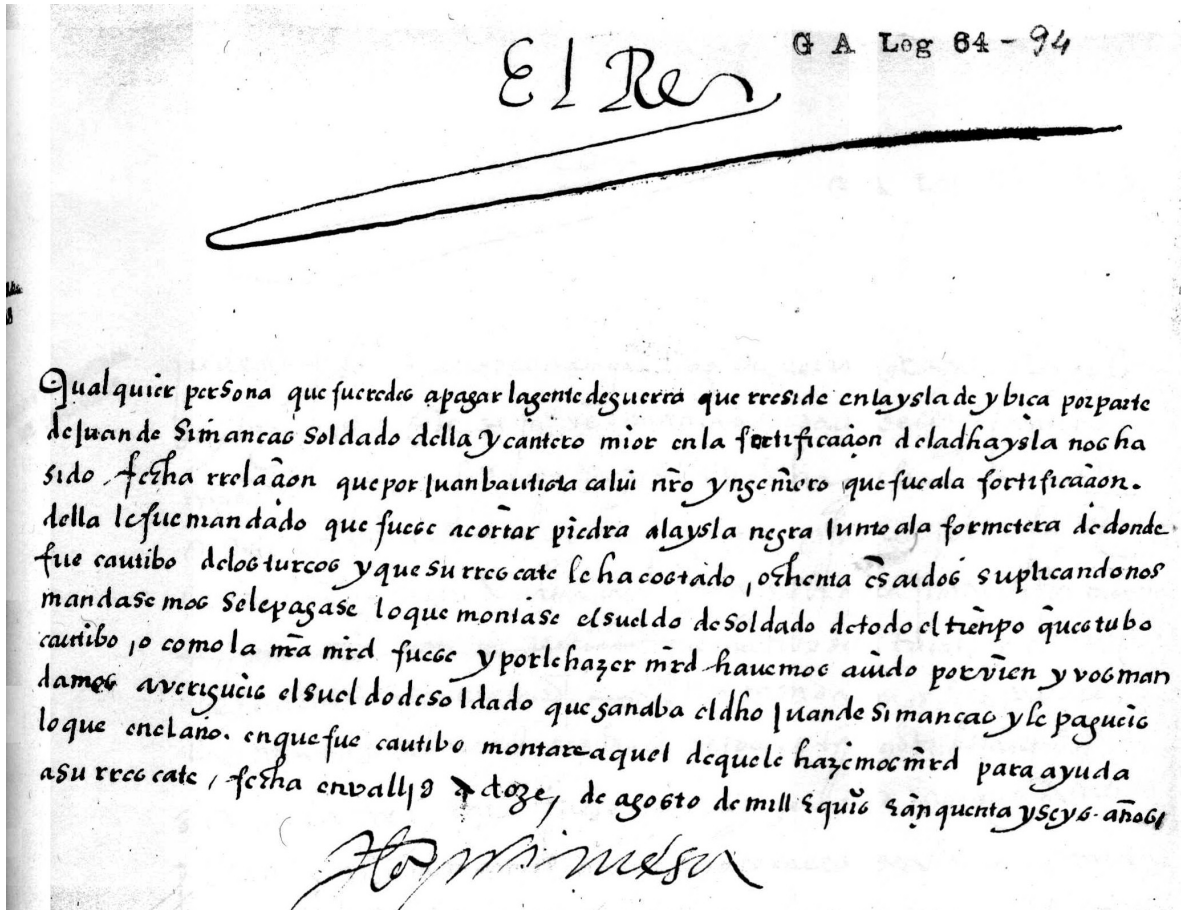 G A Log 64 - 94
El Rey
Qualquier persona que fueredes apagar lagente deguerra que rreside enlaysla de ybica por parte
de Juan de Simancas soldado della y cantero mior enla fortificaçion deladha ysla nos ha
sido fecha rrelaçion que por Juan bautista calui nro yngeniero que fue ala fortificaçion.
della le fue mandado que fuese acortar piedra alaysla negra Junto ala formetera de donde
fue cautibo delos turcos y que su rrescate le ha costado, ochenta escudos suplicandonos
mandasemos sele pagase lo que montase el sueldo de soldado de todo el tienpo questubo
cautibo, o como la nra mrd fuese y por le hazer mrd havemos auido por vien y vos man
damos averigueis el sueldo de soldado que ganaba el dho Juan de Simancas y le pagueis
lo que enel año. en que fue cautibo montare aquel de que le hazemos mrd para ayuda
asu rrescate, fecha en vallid a doze, de agosto de mill e quis çinquenta y seys. años